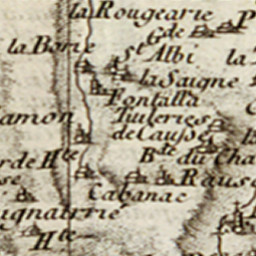 la Rougearie
Gde
P
la Borie
St Albi
la
la Saigne
Fontalla
amon
Tuileries
de Causse
b
rde Hte
Bde du Cha
se
Raus
Cabanac
ignairrie
Hte